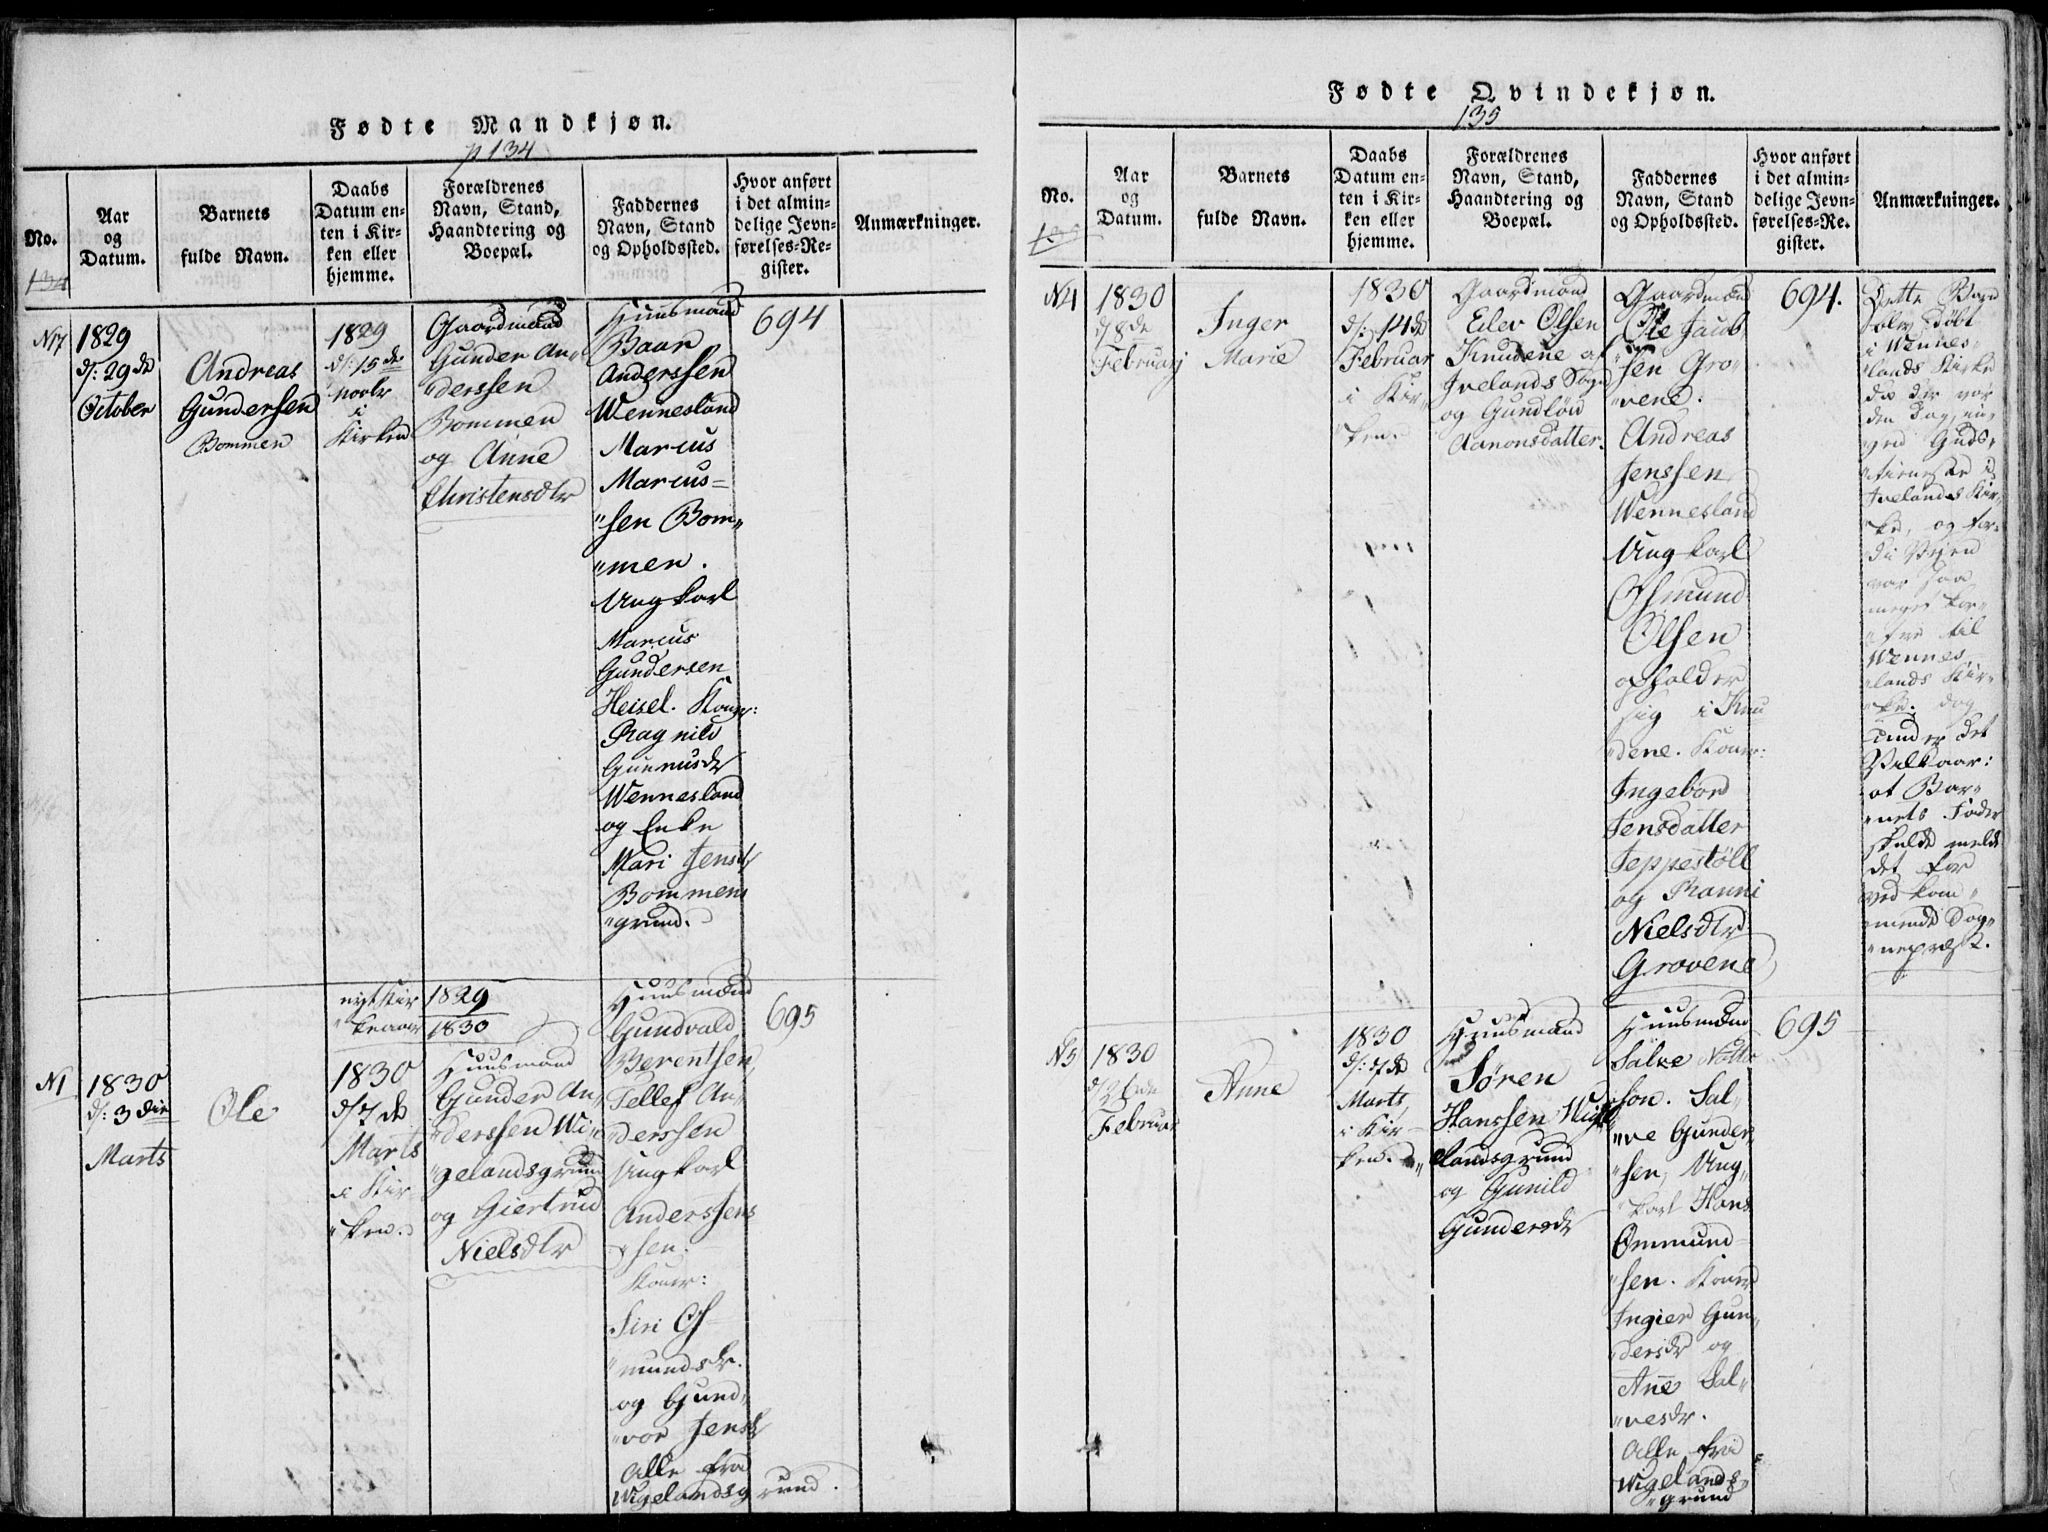 Fødte Mandkjøn.
p 134
No.
134
Aar
og
Datum.
Barnets
fulde Navn.
Daabs
Datum en-
ten i Kir-
ken eller
hjemme.
Forældrenes
Navn, Stand,
Haandtering og
Boepæl.
Faddernes
Navn, Stand
og Opholdssted.
Hvor anført
i det almin-
delige Jevn-
førelses-Re-
gister.
Anmærkninger.
N17
1829
d: 29de
October
Andreas
Gundersen
Bommen
1829
d: 15de
novbr
i
Kirken
Gaardmand
Gunder An„
„derssen
Bommen
og Anne
Christensdtr
Huusmænd
Baar
Anderssen
Wennesland
Marcus
Marcus=
„sen Bom„
„men.
Ungkarl
Marcus
Gundersen
Heisel. Koner:
Ragnild
Gunnusdr
Wennesland
og Enke
Mari Jensdr
Bommens
„grund.
694
nyt Kir
„keaar
1829
1830
N1
1830
d: 3die
Marts
Ole
1830
d/7de
Marts
i Kir„
„ken.
Huusmand
Gunder An„
„derssen Wi„
„gelandsgrund
og Giertrud
Nielsdtr
Huusmænd
Gundvald
Berentsen,
Tellef An„
„derssen
Ungkarl
Anderssens
„sen.
Koner:
Siri Os„
„mundsdr.
og Gund„
„vor Jensdr
Alle fra
Wigelandsgrund.
695
Fødte Qvindekjøn.
135
No.
135
Aar
og
Datum.
Barnets
fulde Navn.
Daabs
Datum en-
ten i Kir-
ken eller
hjemme.
Forældrenes
Navn, Stand,
Haandtering og
Boepæl.
Faddernes
Navn, Stand
og Opholdssted.
Hvor anført
i det almin-
delige Jevn-
førelses-Re-
gister.
Anmærkninger.
N4
1830
d/8de
Februarj
Inger
Marie
1830
d: 14de
Februar
i Kir„
„ken.
Gaardmand
Eilev Olsen
Knudene af
Ivelands Sogn
og Gundlöu
Aanonsdatter.
Gaardmænd
Ole Jacob„
„sen Gro„
„vene.
Andreas
Jenssen
Wennesland
Ungkarl
Osmund
Olsen
opholder
sig i Knu
„dene. Koner:
Ingebor
Jensdatter
Jeppestöll
og Ranni
Nielsdtr
Grovene
694.
Dette Barn
blev döbt
i Wennes„
„lands Kirke
da der var
den Dag in„
„gen Guds„
„tieneste i
Ivelands Kir„
„ke, og for„
di Veien
var saa
meget kor„
„tere til
Wennes„
„lands Kir„
„ke; dog
under det
Vilkaar:
at Bar„
„nets Fader
skulde melde
det for
vedkom„
„mende Sog„
„nepræst.
N5
1830
Februar
Anne
1830
d: 7de
Marts
i Kir„
ken.
Huusmand
Sören
Hanssen Wige„
„landsgrund
og Gunild
Gundersdr
Huusmænd
Salve
son. Sal„
„ve Gunder„
„sen, Ung„
„karl Hans
Ommund„
„sen. Koner
Ingier Gun„
„dersdr og
Ane Sal„
„vesdr.
Alle fra
Wigelands„
„grund
695